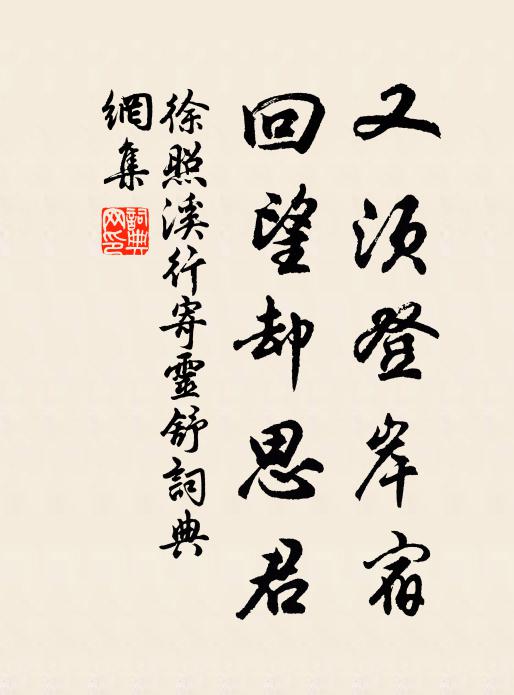 又須登岸宿
回望却思君
徐照溪行寄靈舒詞典
網集
詞典網印